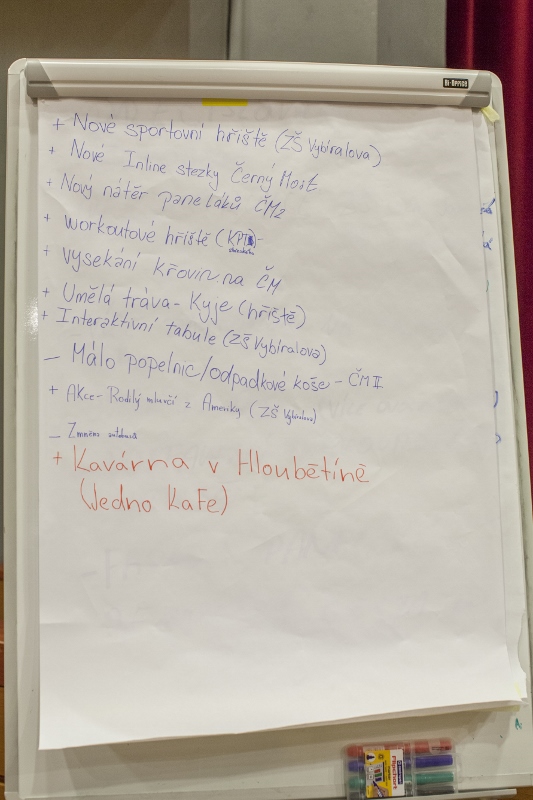 Bi-Office
+ Nové sportovní hřiště (ZŠ Vybíralova)
+ Nové Inline stezky Černý Most
+ Nový nátěr paneláků ČM2
+ workoutové hřiště (KPT)-
+ vysekání křovin na ČM
+ Umělá tráva - Kyje (hřiště)
+ Interaktivní tabule (ZŠ Vybíralova)
- Málo popelnic/odpadkové koše - ČM II
+ Akce - Rodilý mluvčí z Ameriky (ZŠ Vybíralova)
-
+ Kavárna v Hloubětíně
(Jedno Kafe)
Flipchart